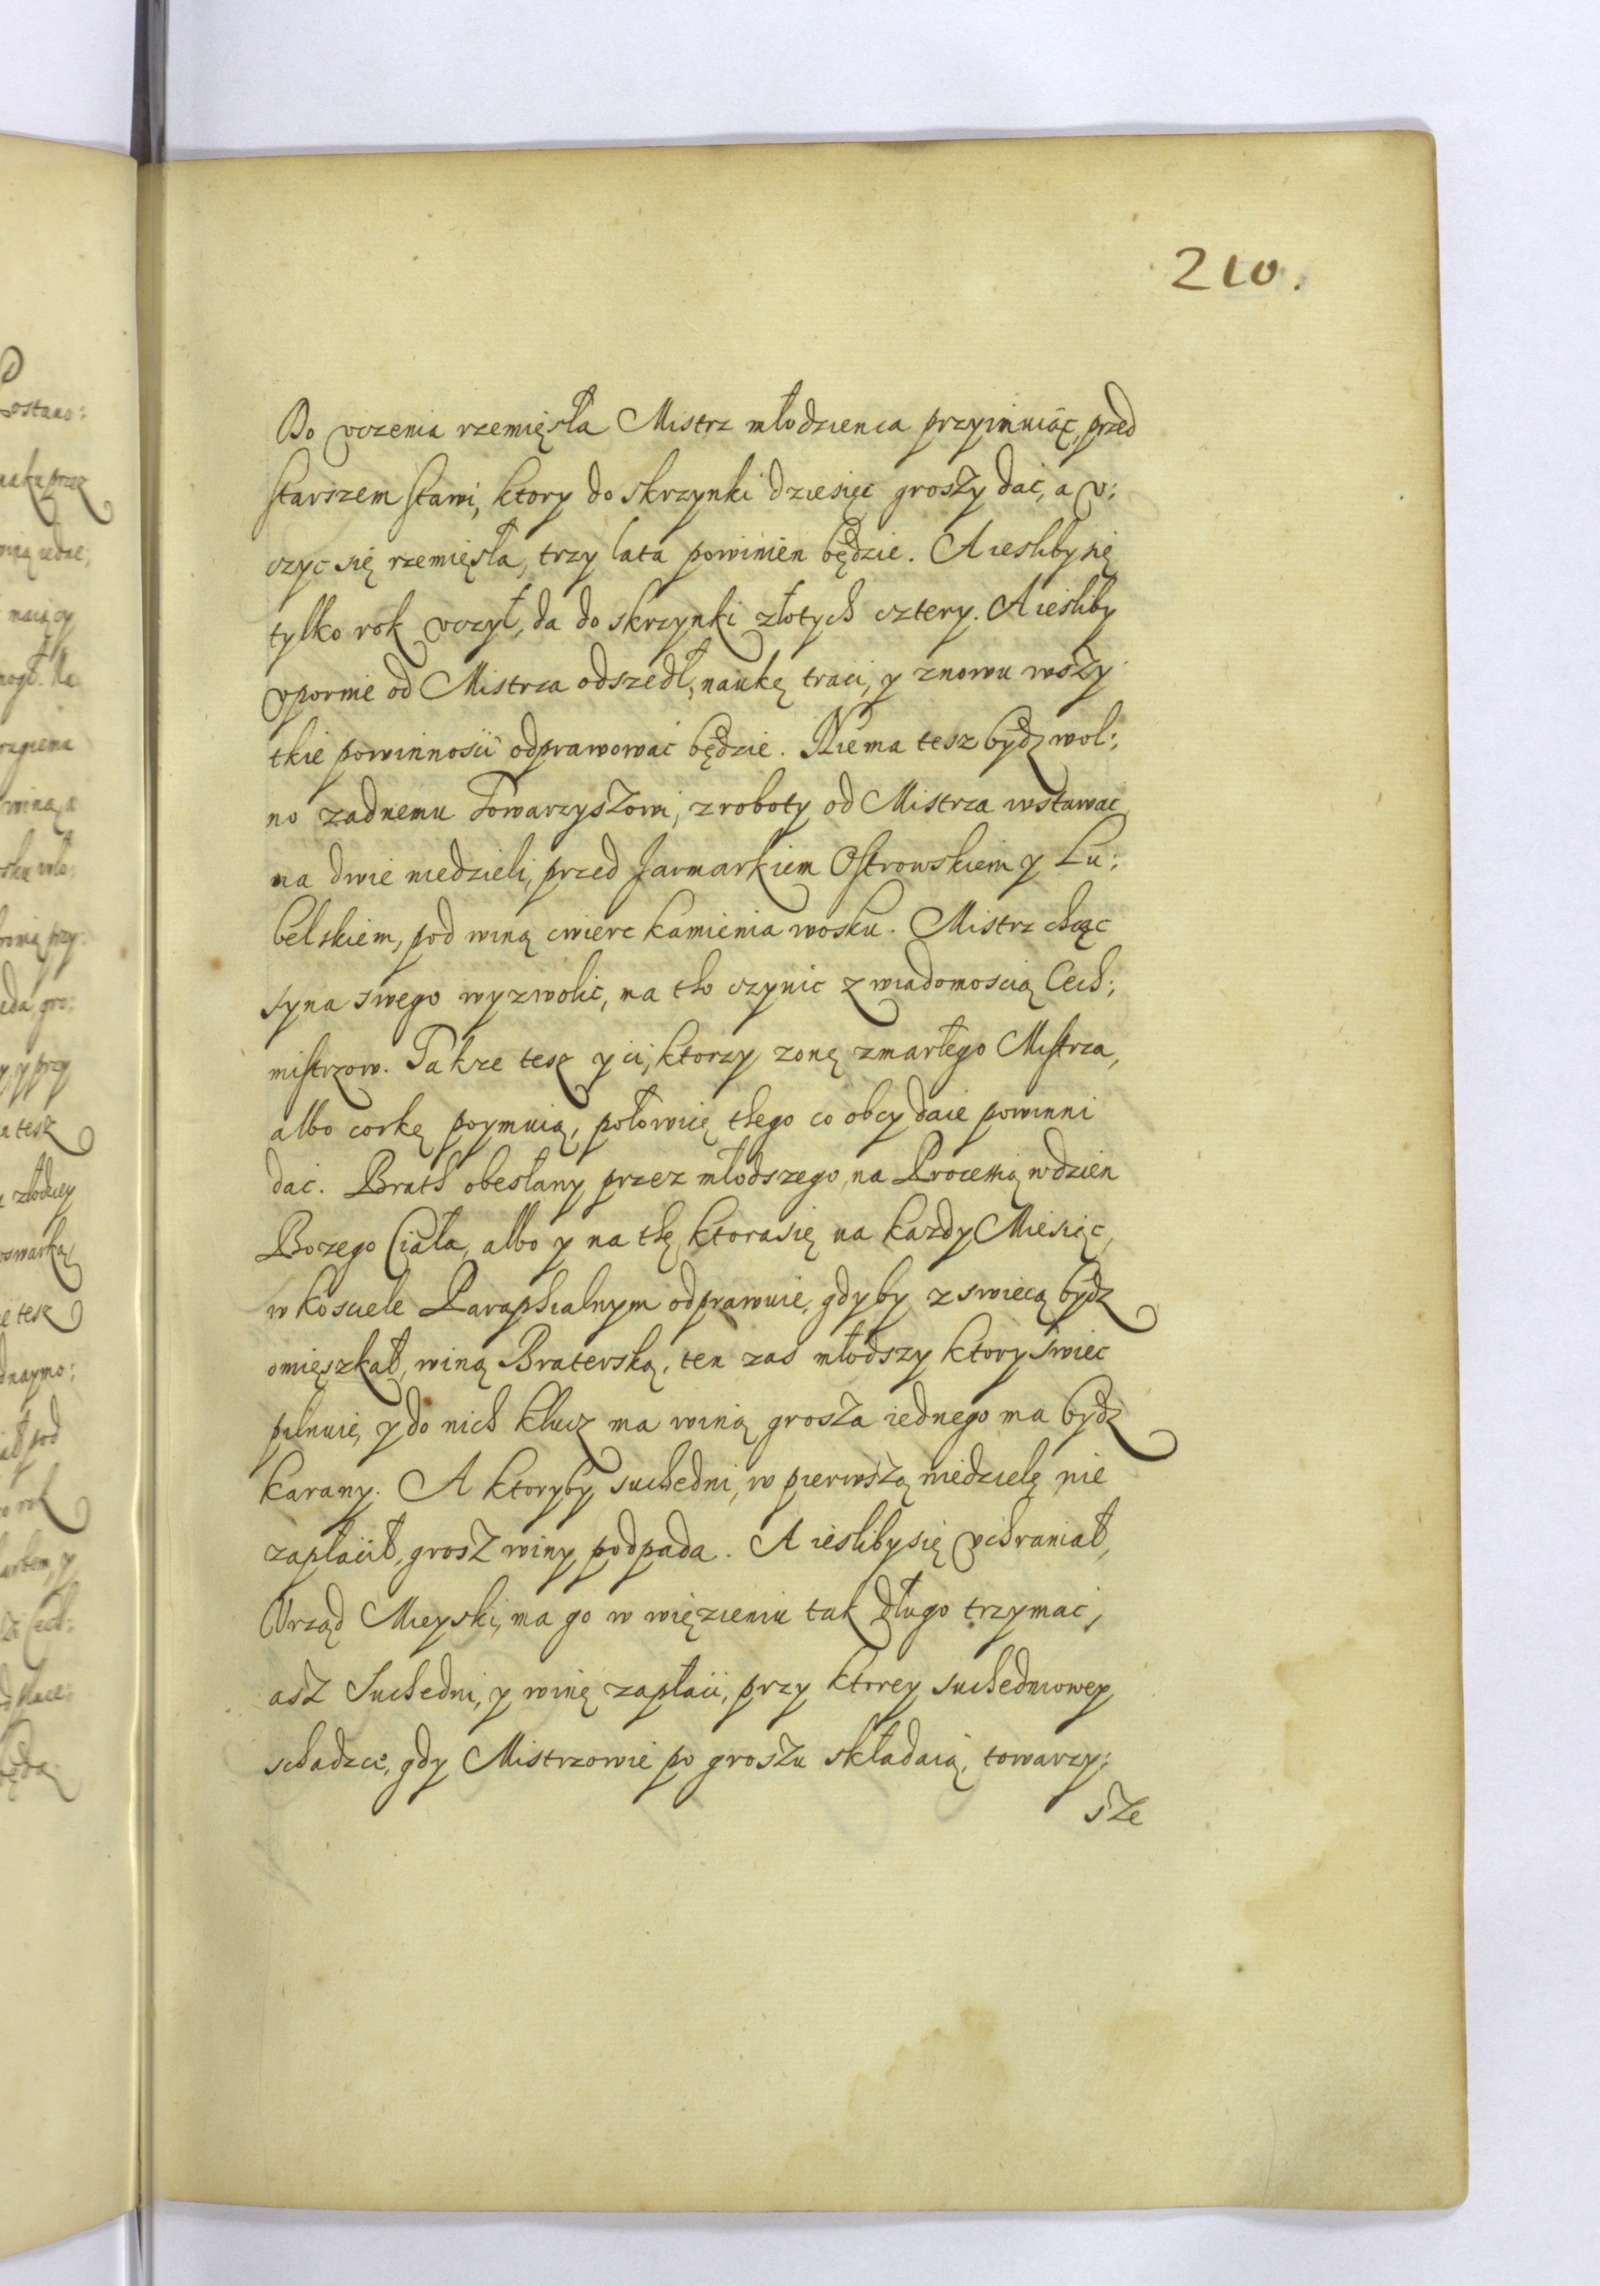 210.
Do vczenia rzemięsła Mistrz młodzienca przyimuiąc, przed
starszem stawi, ktory do skrzynki dziesięc groszy dac, a v:
czyc się rzemięsła, trzy lata powinien będzie. A iesliby się
tylko rok vczył, da do skrzynki złotych cztery. A iesliby
vpornie od Mistrza odszedł, naukę traci, y znowu wszy
tkie powinnosci odprawowac będzie. Nie ma tesz bydz wol:
no zadnemu Towarzyszowi, z roboty od Mistrza wstawac
na dwie niedzieli, przed Jarmarkiem Ostrowskiem y Lu:
belskiem, pod winą cwierc kamienia wosku. Mistrz chcąc
syna swego wyzwolic, ma tho czynic z wiadomoscią Cech:
mistrzow. Takze tesz y ci, ktorzy zonę zmarłego Mistrza,
albo corkę poymuią, połowicę thego co obcy daie powinni
dac. Brath obesłany przez młodszego, na Processią w dzien
Bozego Ciała, albo y na thę, ktora się na kazdy Miesiąc,
w kosciele Paraphialnym odprawuie, gdyby z swiecą bydz
omięszkał, winą Braterską, ten zas młodszy ktory swiec
pilnuie, y do nich klucz ma winą grosza iednego ma bydz
karany. A ktoryby suchedni, w pierwszą niedzielę nie
zapłacił, grosz winy podpada. A iesliby się vchraniał,
Vrząd Mieyski, ma go w więzieniu tak długo trzymac,
asz Suchedni, y winę zapłaci, przy ktorey suchedniowey
schadzce, gdy Mistrzowie po groszu składaią, towarzy:
sze